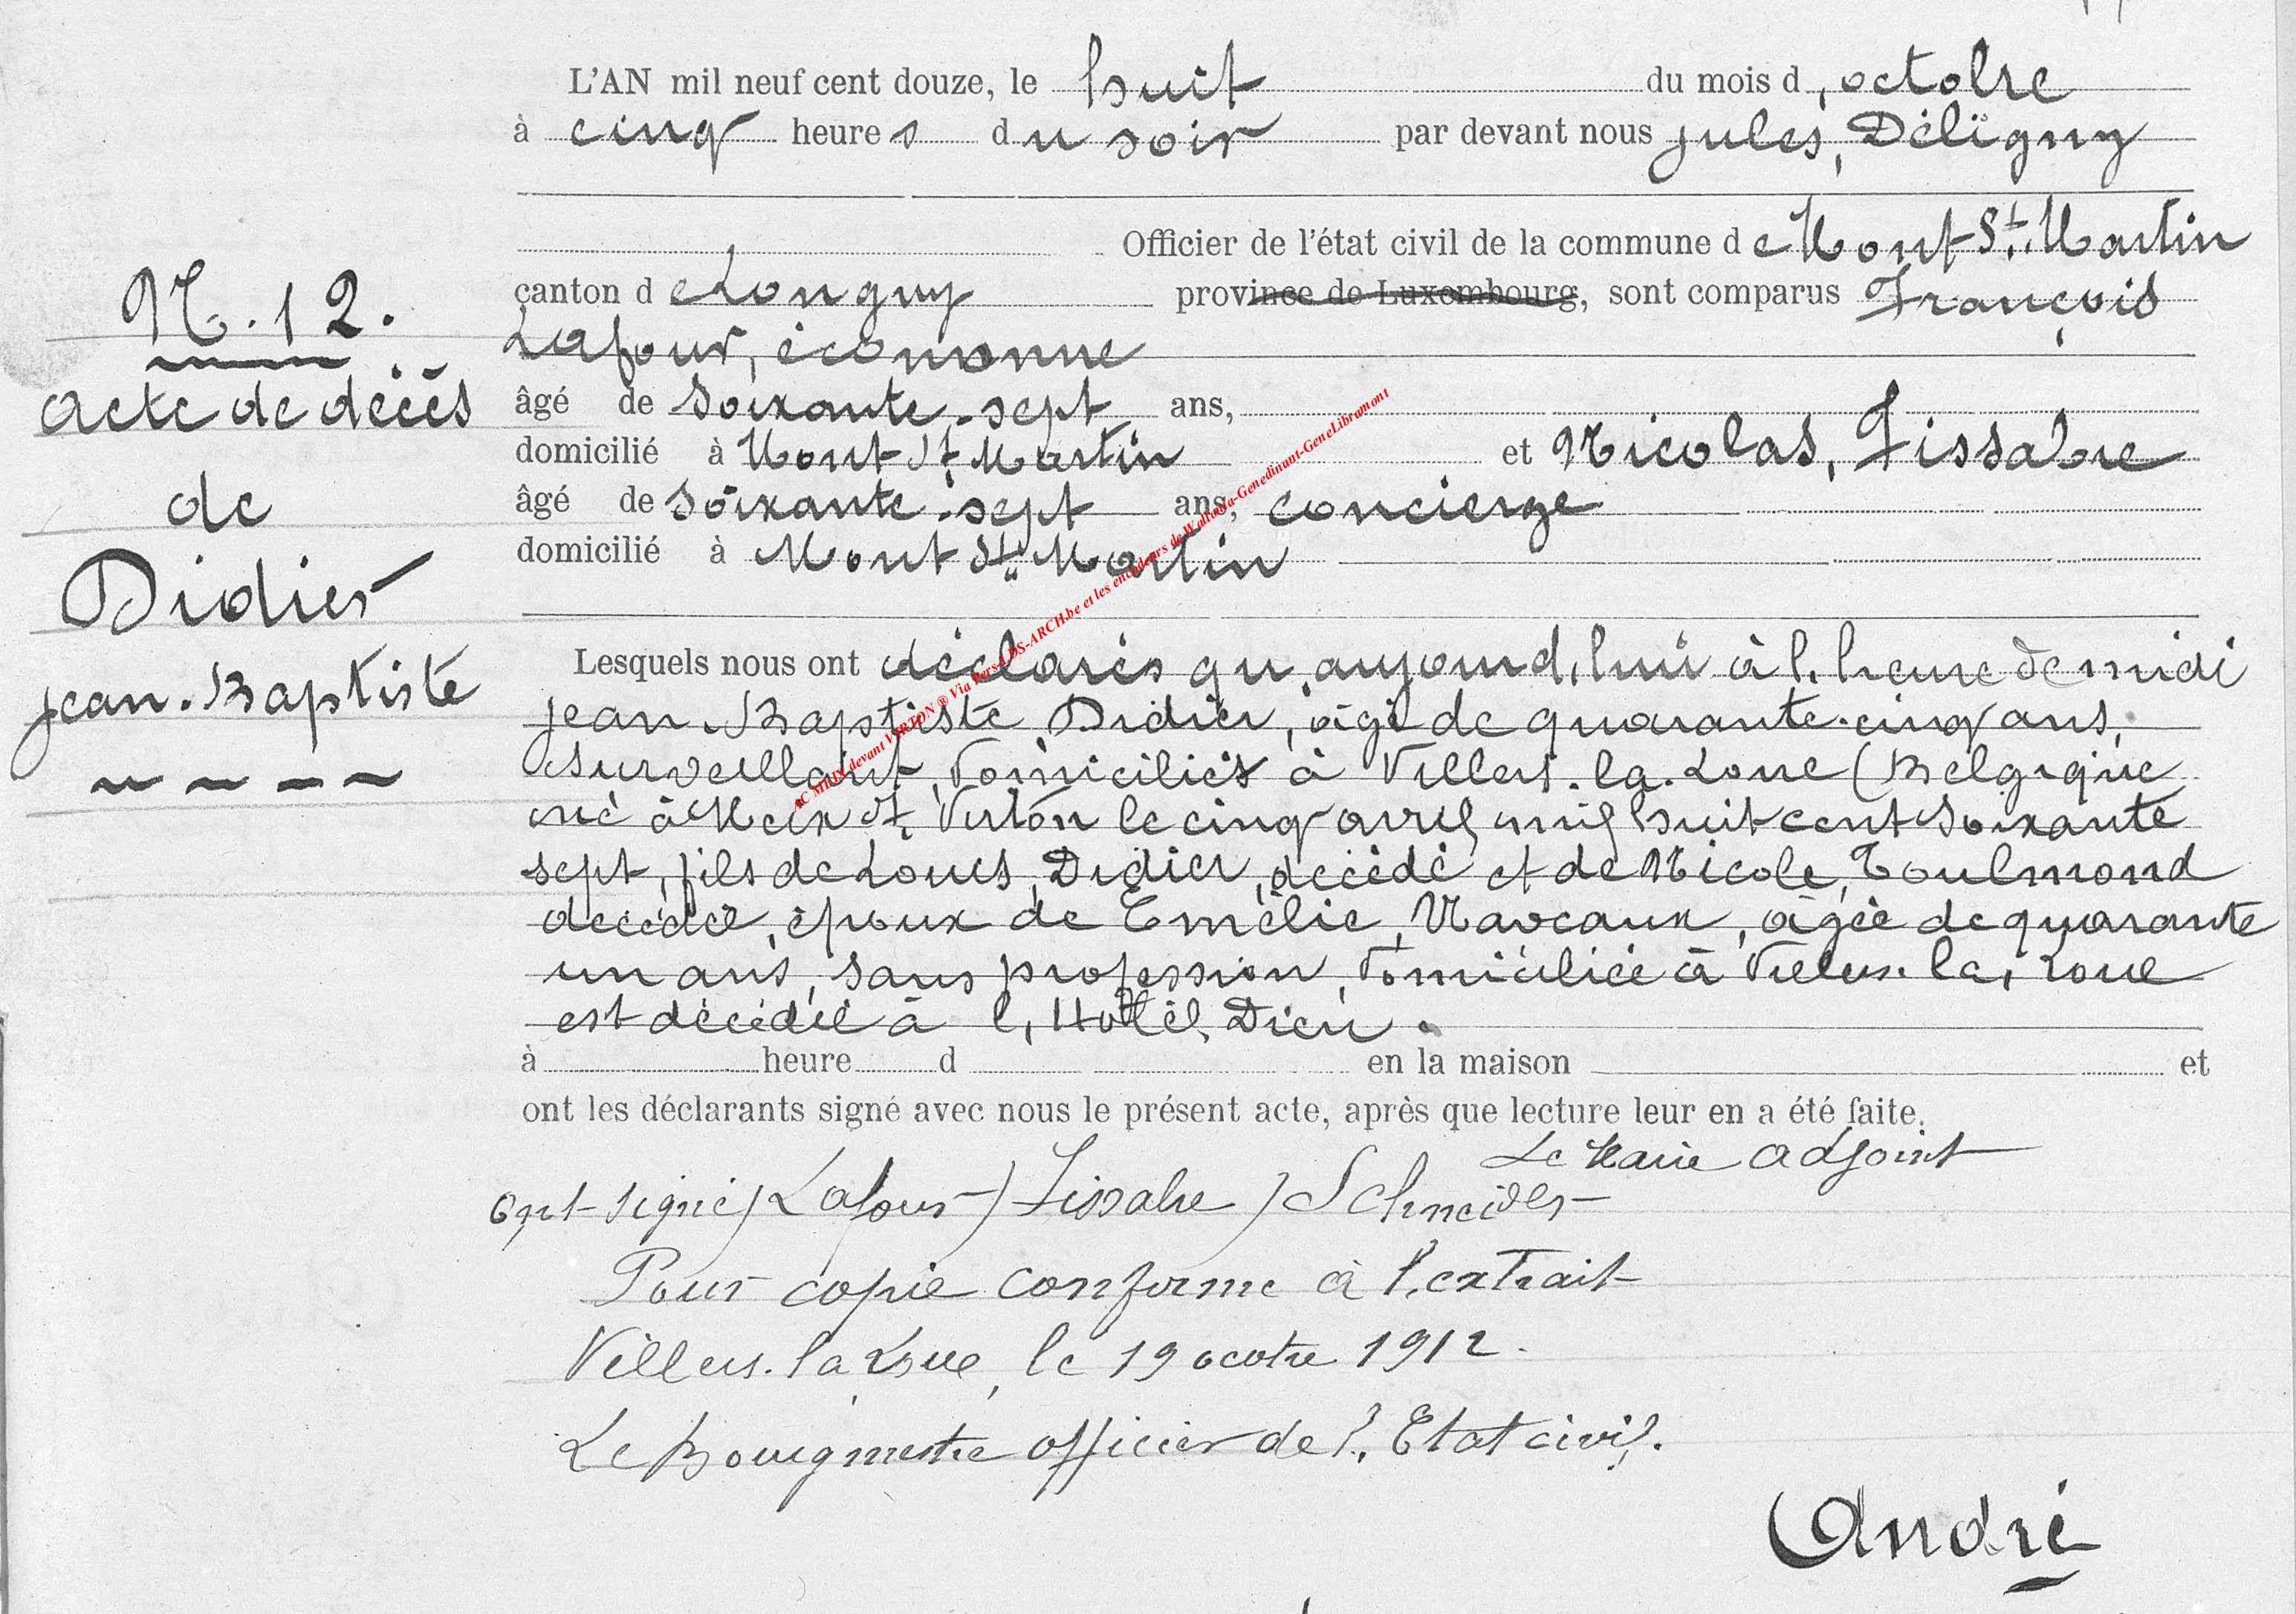 L'AN mil neuf cent douze, le huit du mois d, octobre
à cinq heures du soir par devant nous jules, Déligny
Officier de l'état civil de la commune de Mont St. Martin
canton de Longwy province de Luxembourg, sont comparus François
Lafour, économe
âgé de soixante-sept ans,
domicilié à Mont St. Martin et Nicolas, Fissabre
âgé de soixante-sept ans, concierge
domicilié à Mont St. Martin
N. 12.
Acte de décès
de
Didier
jean-Baptiste
Lesquels nous ont déclarés qu'aujourd,hui à l, heure de midi
jean-Baptiste Didier, âgé de quarante-cinq ans,
surveillant, domiciliés à Villers-la-Loue (Belgique
né à Meix dt Virton le cinq avril mil huit cent soixante
sept, fils de Louis, Didier, décédé et de Nicole, Toulmond
décédée, époux de Emélie, Naveaux, âgée de quarante
un ans, sans profession, domiciliée à Villers-la,Loue
est décédé à l, Hôtel, Dieu.
à heure d en la maison et
ont les déclarants signé avec nous le présent acte, après que lecture leur en a été faite.
Le Maire adjoint
Ont signé) Lafour) Fissabre) Schneider
Pour copie conforme à l, extrait
Villers-la Loue, le 19 ocotre 1912.
Le Bourgmestre officier de l, Etat civil.
André
AC MEIX devant VIRTON ® Via Pers-LDS-ARCH.be et les encodeurs de Wallonia-Genedinant-GeneLibramont